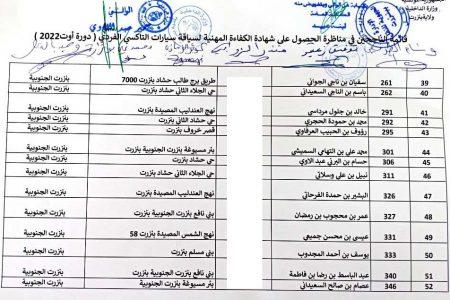 وزارة الداخلية
ولاية بنزرت
الوالي
قائمة الناجحين في مناظرة الحصول على شهادة الكفاءة المهنية لسياقة سيارات التاكسي الفردي ( دورة أوت2022 )
39 261 سفيان بن ناجي الجواني طريق برج طالب حشاد بنزرت 7000 بنزرت الجنوبية
40 262 باسم بن ناجي السعيداني حي الجلاء الثاني حشاد بنزرت بنزرت الجنوبية
41 291 خالد بن جلول مرداسي نهج العندليب المصيدة بنزرت بنزرت الجنوبية
42 292 محمد بن حمودة الحجري حي حشاد بنزرت بنزرت الجنوبية
43 295 رؤوف بن الحبيب العرفاوي قصر خروف بنزرت بنزرت الجنوبية
44 301 محمد علي بن التهامي السميشي بئر مسيوغة بنزرت الجنوبية بنزرت بنزرت الجنوبية
45 306 حسام بن البرني عبد الاوي حي حشاد بنزرت بنزرت الجنوبية
46 311 نبيل بن علي وسلاتي حي الجلاء الثاني حشاد بنزرت بنزرت الجنوبية
47 326 البشير بن حمدة الفرحاتي نهج العندليب المصيدة بنزرت بنزرت الجنوبية
48 327 عمر بن محجوب بن رمضان بني نافع بنزرت الجنوبية بنزرت بنزرت الجنوبية
49 331 عيسى بن محسن جميعي نهج الشمس المصيدة بنزرت 58 بنزرت الجنوبية
50 333 يوسف بن أحمد المجدوب بني مسلم بنزرت بنزرت الجنوبية
51 340 عبد الباسط بن رضا بن فاطمة بني نافع بنزرت الجنوبية بنزرت بنزرت الجنوبية
52 346 عصام بن صالح السعيداني بئر مسيوغة بنزرت بنزرت الجنوبية